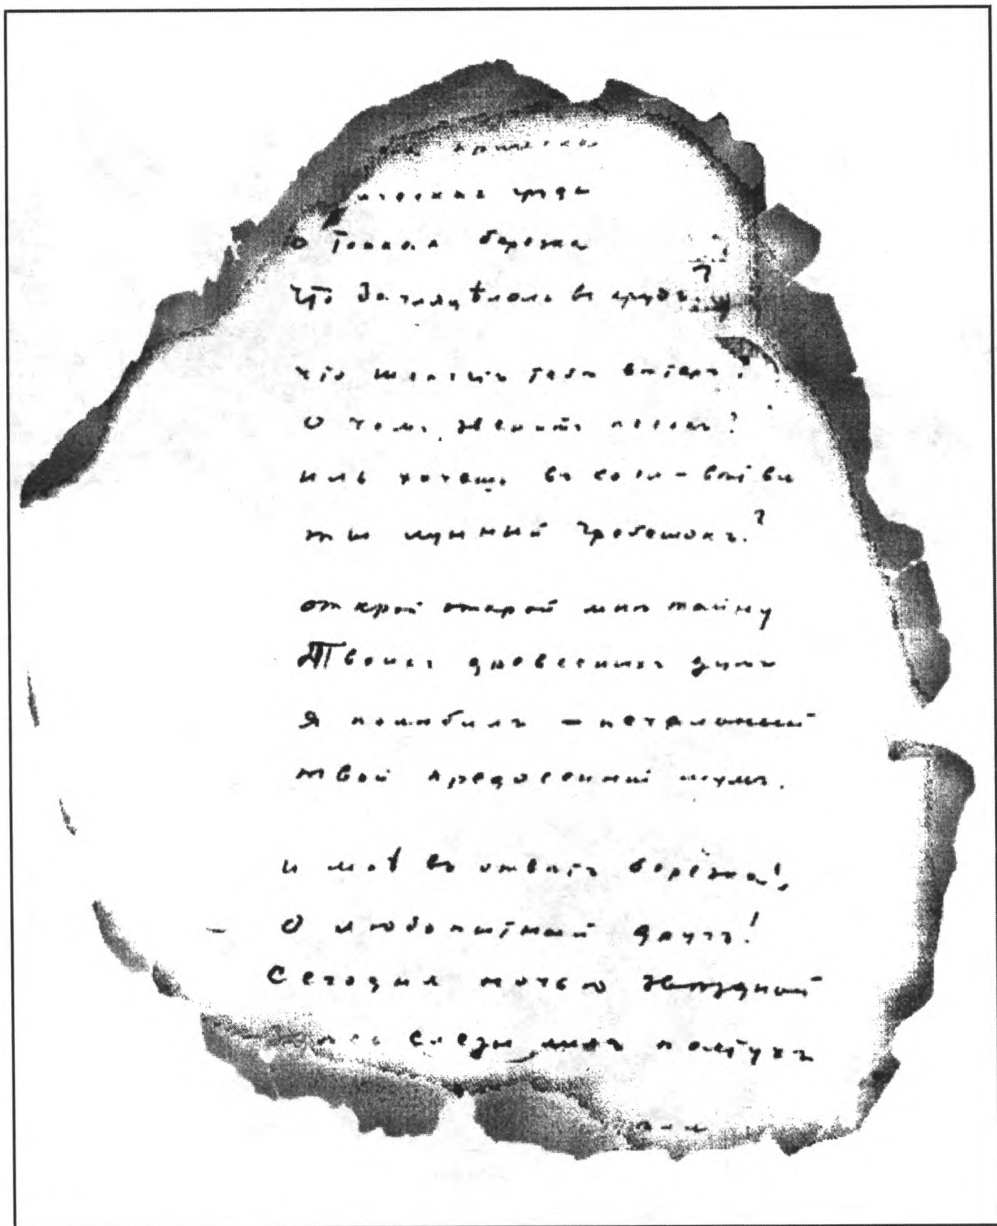 прическа
ическая грудь
О Тонкая березка
Что Заглядѣлась въ прудъ?
Что шепчитъ тебѣ вѣтеръ?
О чемъ звенитъ песокъ?
иль хочешь въ косы-вѣтви
ты лунный гребешокъ?
открой открой мнѣ тайну
Твоихъ древесныхъ думъ
Я полюбилъ – печальный
твой предосенний шумъ.
и мнѣ въ отвѣтъ березка!
О любопытный другъ!
Сегодня ночью звездной
слезы лилъ пастухъ